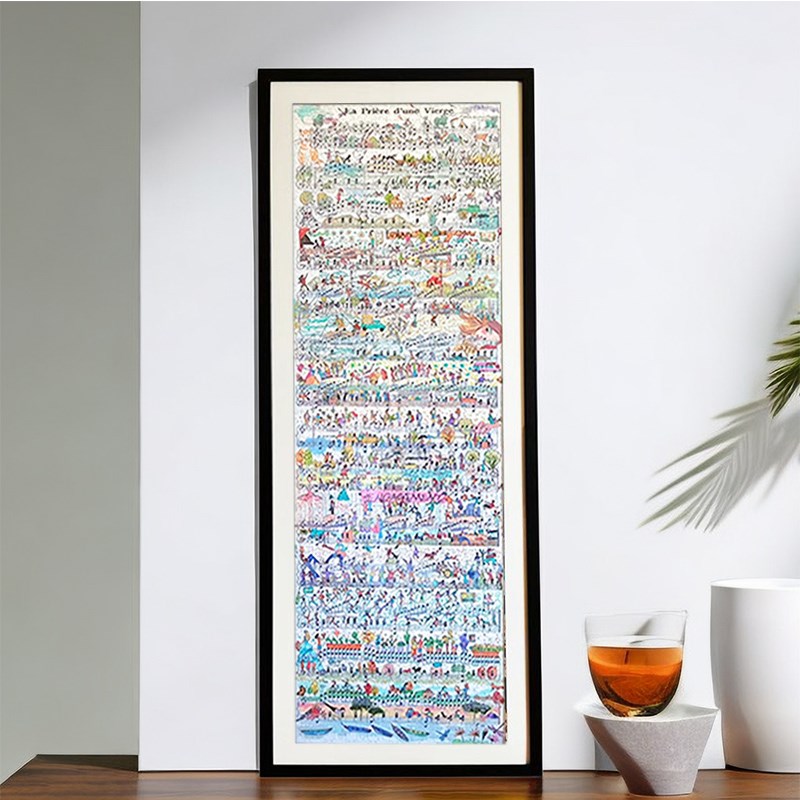 La Prière d'une Vierge